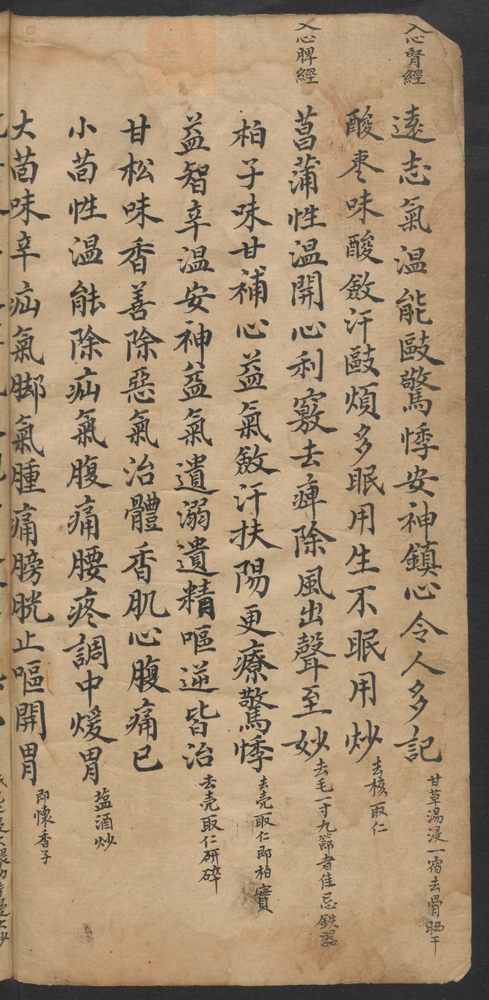 入心腎經
遠志氣溫能敺驚悸安神鎮心令人多記甘草湯浸一宿去骨晒干
酸枣味酸斂汗敺煩多眠用生不眠用炒去核取仁
入心脾經
菖蒲性溫開心利竅去痺除風出聲至妙去毛一寸九節者佳忌鉄器
柏子味甘補心益氣斂汗扶陽更療驚悸去壳取仁即柏實
益智辛溫安神益氣遺溺遺精嘔逆皆治去壳取仁研碎
甘松味香善除惡氣治體香肌心腹痛已
小茴性溫能除疝氣腹痛腰疼調中煖胃盐酒炒
大茴味辛疝氣脚氣腫痛膀胱止嘔開胃即懷香子